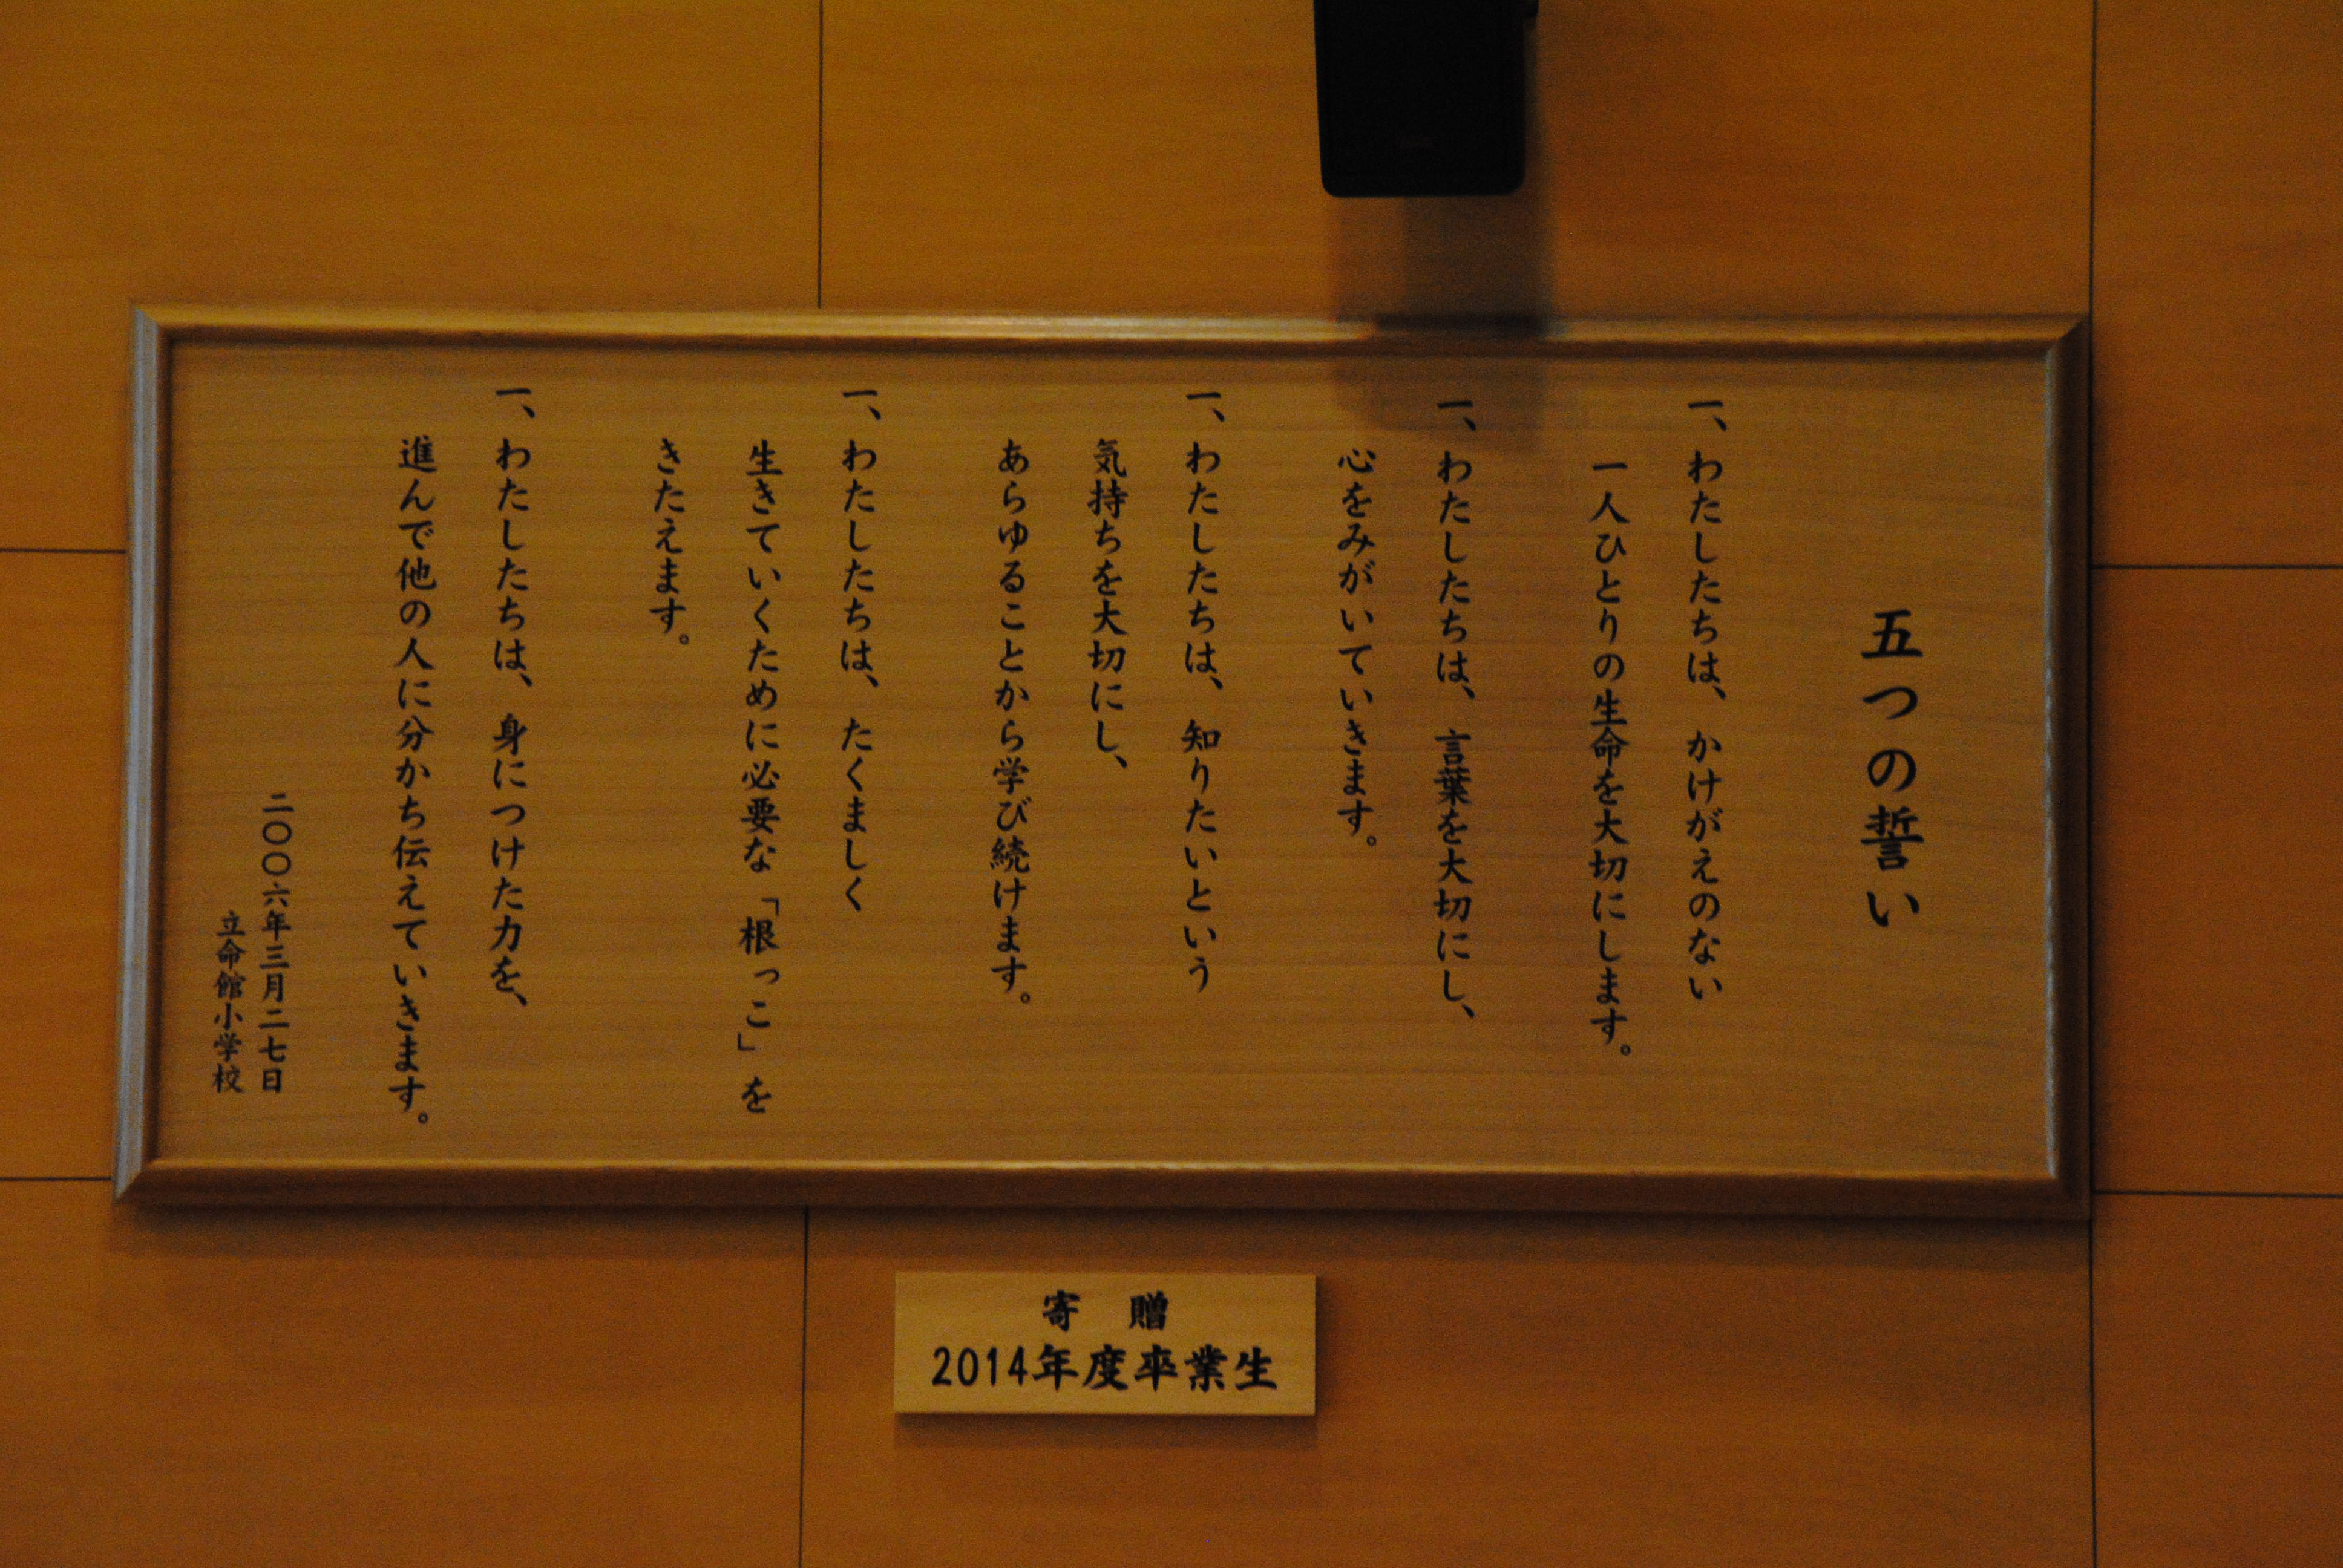 五つの誓い
一、わたしたちは、かけがえのない
一人ひとりの生命を大切にします。
一、わたしたちは、言葉を大切にし、
心をみがいていきます。
一、わたしたちは、知りたいという
気持ちを大切にし、
あらゆることから学び続けます。
一、わたしたちは、たくましく
生きていくために必要な「根っこ」を
きたえます。
一、わたしたちは、身につけた力を、
進んで他の人に分かち伝えていきます。
二〇〇六年三月二七日
立命館小学校
寄 贈
2014年度卒業生